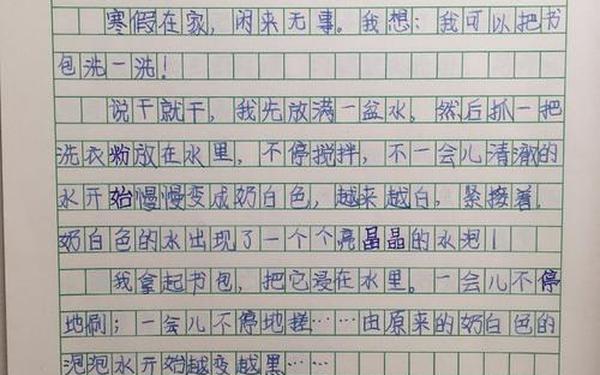 寒假在家，闲来无事。我想：我可以把书
包洗一洗！
说干就干，我先放满一盆水，然后抓一把
洗衣粉放在水里，不停搅拌，不一会儿清澈的
水开始慢慢变成奶白色，越来越白，紧接着，
奶白色的水出现了一个个亮晶晶的水泡！
我拿起书包，把它浸在水里。一会儿不停
地刷；一会儿不停地搓……由原来的奶白色的
泡泡水开始越变越黑……